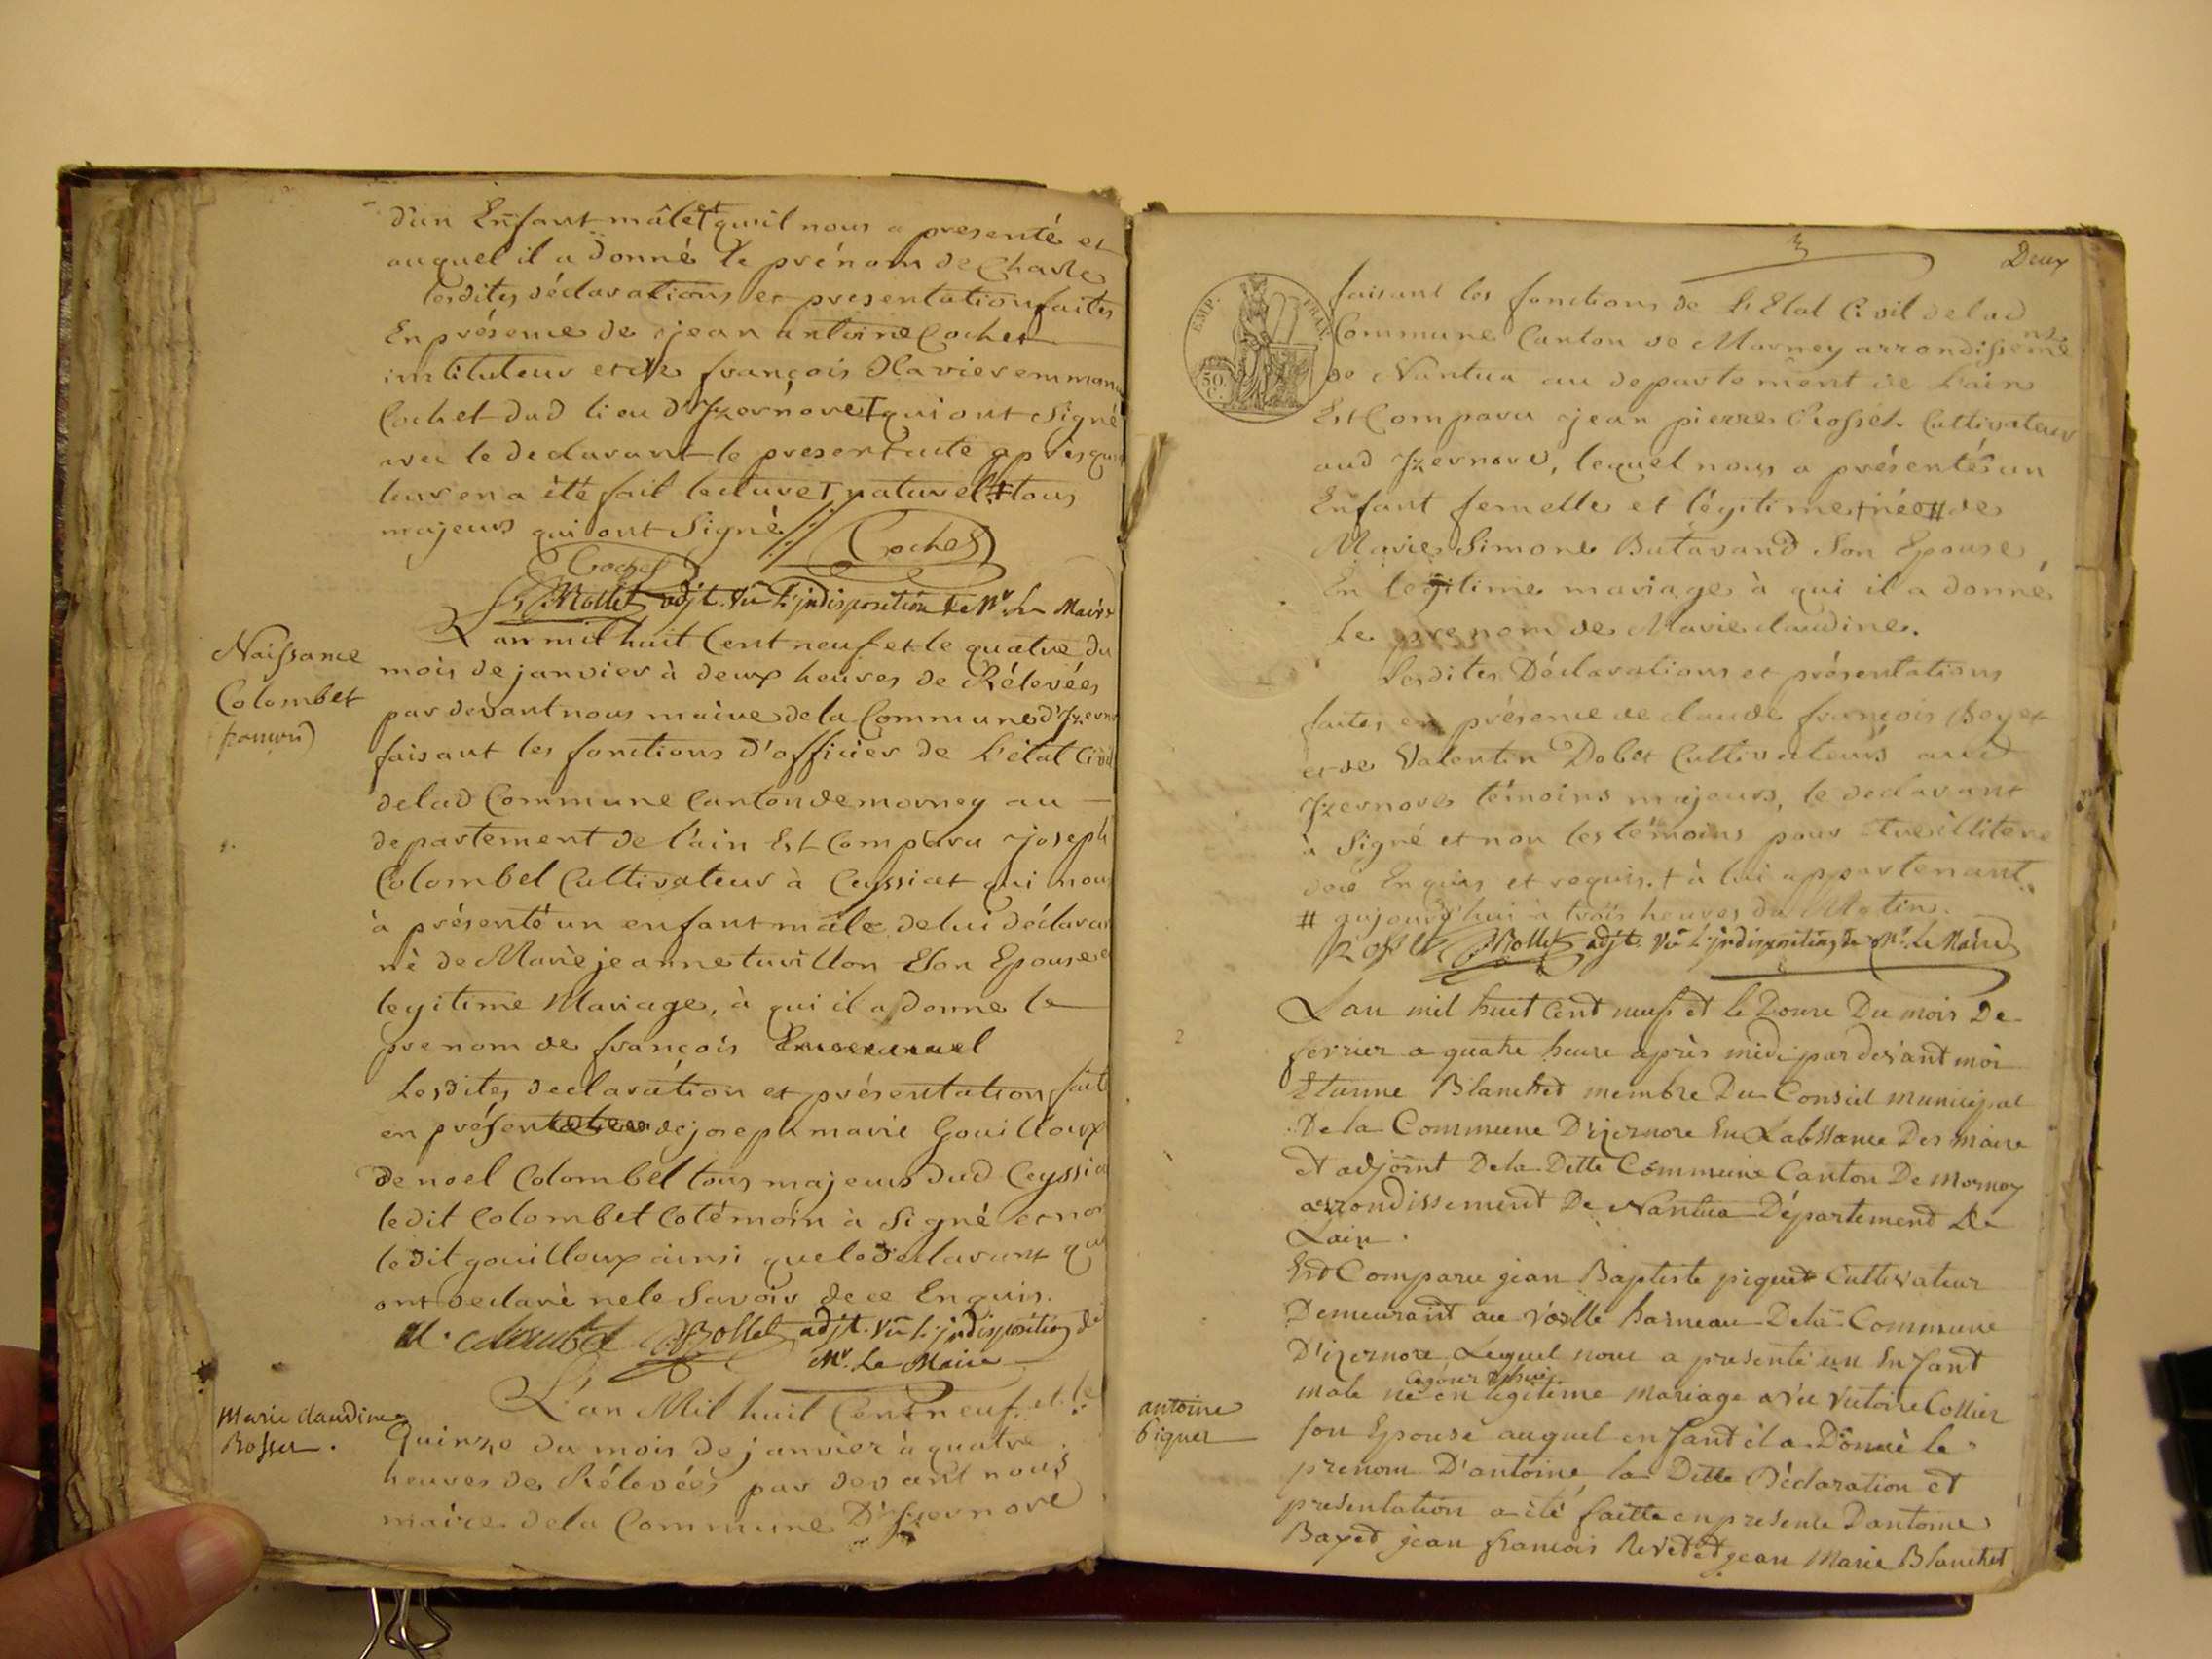 d'un Enfant mâle et qu'il nous a presenté et
auquel il a donné le prénom de Charle
lesdites déclarations et presentation faites
En présence de jean antoine Cochet
instituteur et de françois Xavier emmanu
Cochet dud lieu d'Izernore T qui ont Signé
avec le declarant le present acte après qu
leur en a été fait lecture T naturel # tous
majeurs qui ont Signé // Cochet
Cochet
Mollet adjt. vu l'indisposition de Mr. Le Maire
Naissance
Colombet
françois
L'an mil huit Cent neuf et le quatre du
mois de janvier à deux heures de Rélevéés
par devant nous maire de la Commune d'Izerno
faisant les fonctions d'officier de L'état Civil
delad Commune Canton de mornay au
departement de l'ain Est Comparu joseph
Colombet Cultivateur à Ceyssiat qui nous
à présenté un enfant mâle de lui déclarant
né de Marie jeanne tuvillon Son Epouse e
legitime Mariage, à qui il a donné le
prenom de françois Emmanuel
Lesdites declaration et présentation fait
en présen de joseph marie Gouilloux
de noel Colombet tous majeurs dud Ceyssia
ledit Colombet Cotémoin à Signé et non
ledit gouilloux ainsi que le declarant qui
ont declaré ne le Savoir de ce Enquis.
N. Colombet Mollet adjt. vu l'indisposition de
Mr. Le Maire
Marie claudine
Rosset.
L'an Mil huit Cent neuf et le
Quinze du mois de janvier à quatre
heures de Rélevéés par devant nous
maire de la Commune D'Izernore
Deux
EMP. FRAN.
50.
C.
faisant les fonctions de L'Etat Civil delad
Commune Canton de Mornay arrondissement
de Nantua au departement de L'ain
Est Comparu jean pierre Rosset Cultivateur
aud Izernore, lequel nous a présenté un
Enfant femelle et légitime + née # de
Marie Simone Butavand Son Epouse
En legitime mariage à qui il a donné
le prenom de Marie claudine.
Lesdites Déclarations et présentations
faites en présence de claude françois Boyet
et de Valentin Dobet Cultivateurs aud
Izernore témoins majeurs, le declarant
à Signé et non les témoins pour être illitere
de ce Enquis et requis. + à lui appartenant
# aujourd'hui à trois heures du Matin.
Rosset Mollet adjt. vu l'indisposition de Mr. Le Maire
2
L'an mil huit Cent neuf et le Douze Du mois De
fevrier a quatre heure après midi par devant moi
Etienne Blanchet membre Du Conseil municipal
De la Commune D'izernore En Labssance Des maire
et adjoint De la Ditte Commune Canton De mornay
arrondissement De Nantua Département De
Lain.
Est Comparu jean Baptiste piquet Cultivateur
Demeurant au voslle hameau De la Commune
D'izernore Lequel nous a presenté un Enfant
aujourd'huy
male né en legitime mariage avec victoire Collier
antoine
piquet
son Epouse auquel enfant il a Donné le
prenom D'antoine la Ditte Déclaration et
presentation a été faitte en presence D'antoine
Bayet jean francois Revet et jean Marie Blanchet